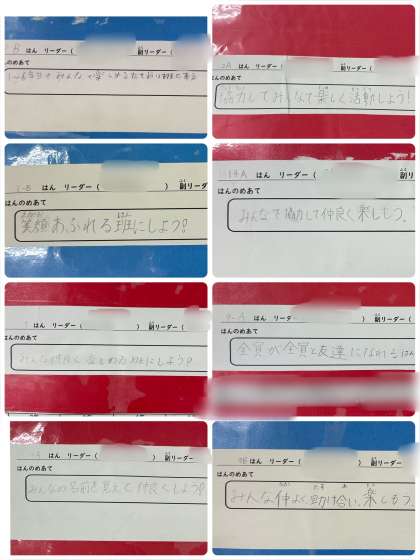 B はん リーダー( 副リーダー(
はんのめあて
1~6年生が みんなで楽しめる
2A はん リーダー( 副リーダー(
はんのめあて
協力してみんなで楽しく活動しよう!
1-B はん リーダー( ) 副リーダー
はんのめあて
笑顔あふれる班にしよう!
14A はん リーダー( ) 副リー
はんのめあて
みんなで協力して仲良く楽しもう。
はん リーダー( ) 副リーダー(
はんのめあて
みんな仲良く 班にしよう!
9-A はん リーダ 副リーダー(
はんのめあて
全員が全員と友達になれるはん
はん リーダー( ) 副リーダー
はんのめあて
みんなの名前を覚えて仲良くしよう!
9B はん リーダー( ) 副リーダー(
はんのめあて
みんな仲よく助け合い、楽しもう。